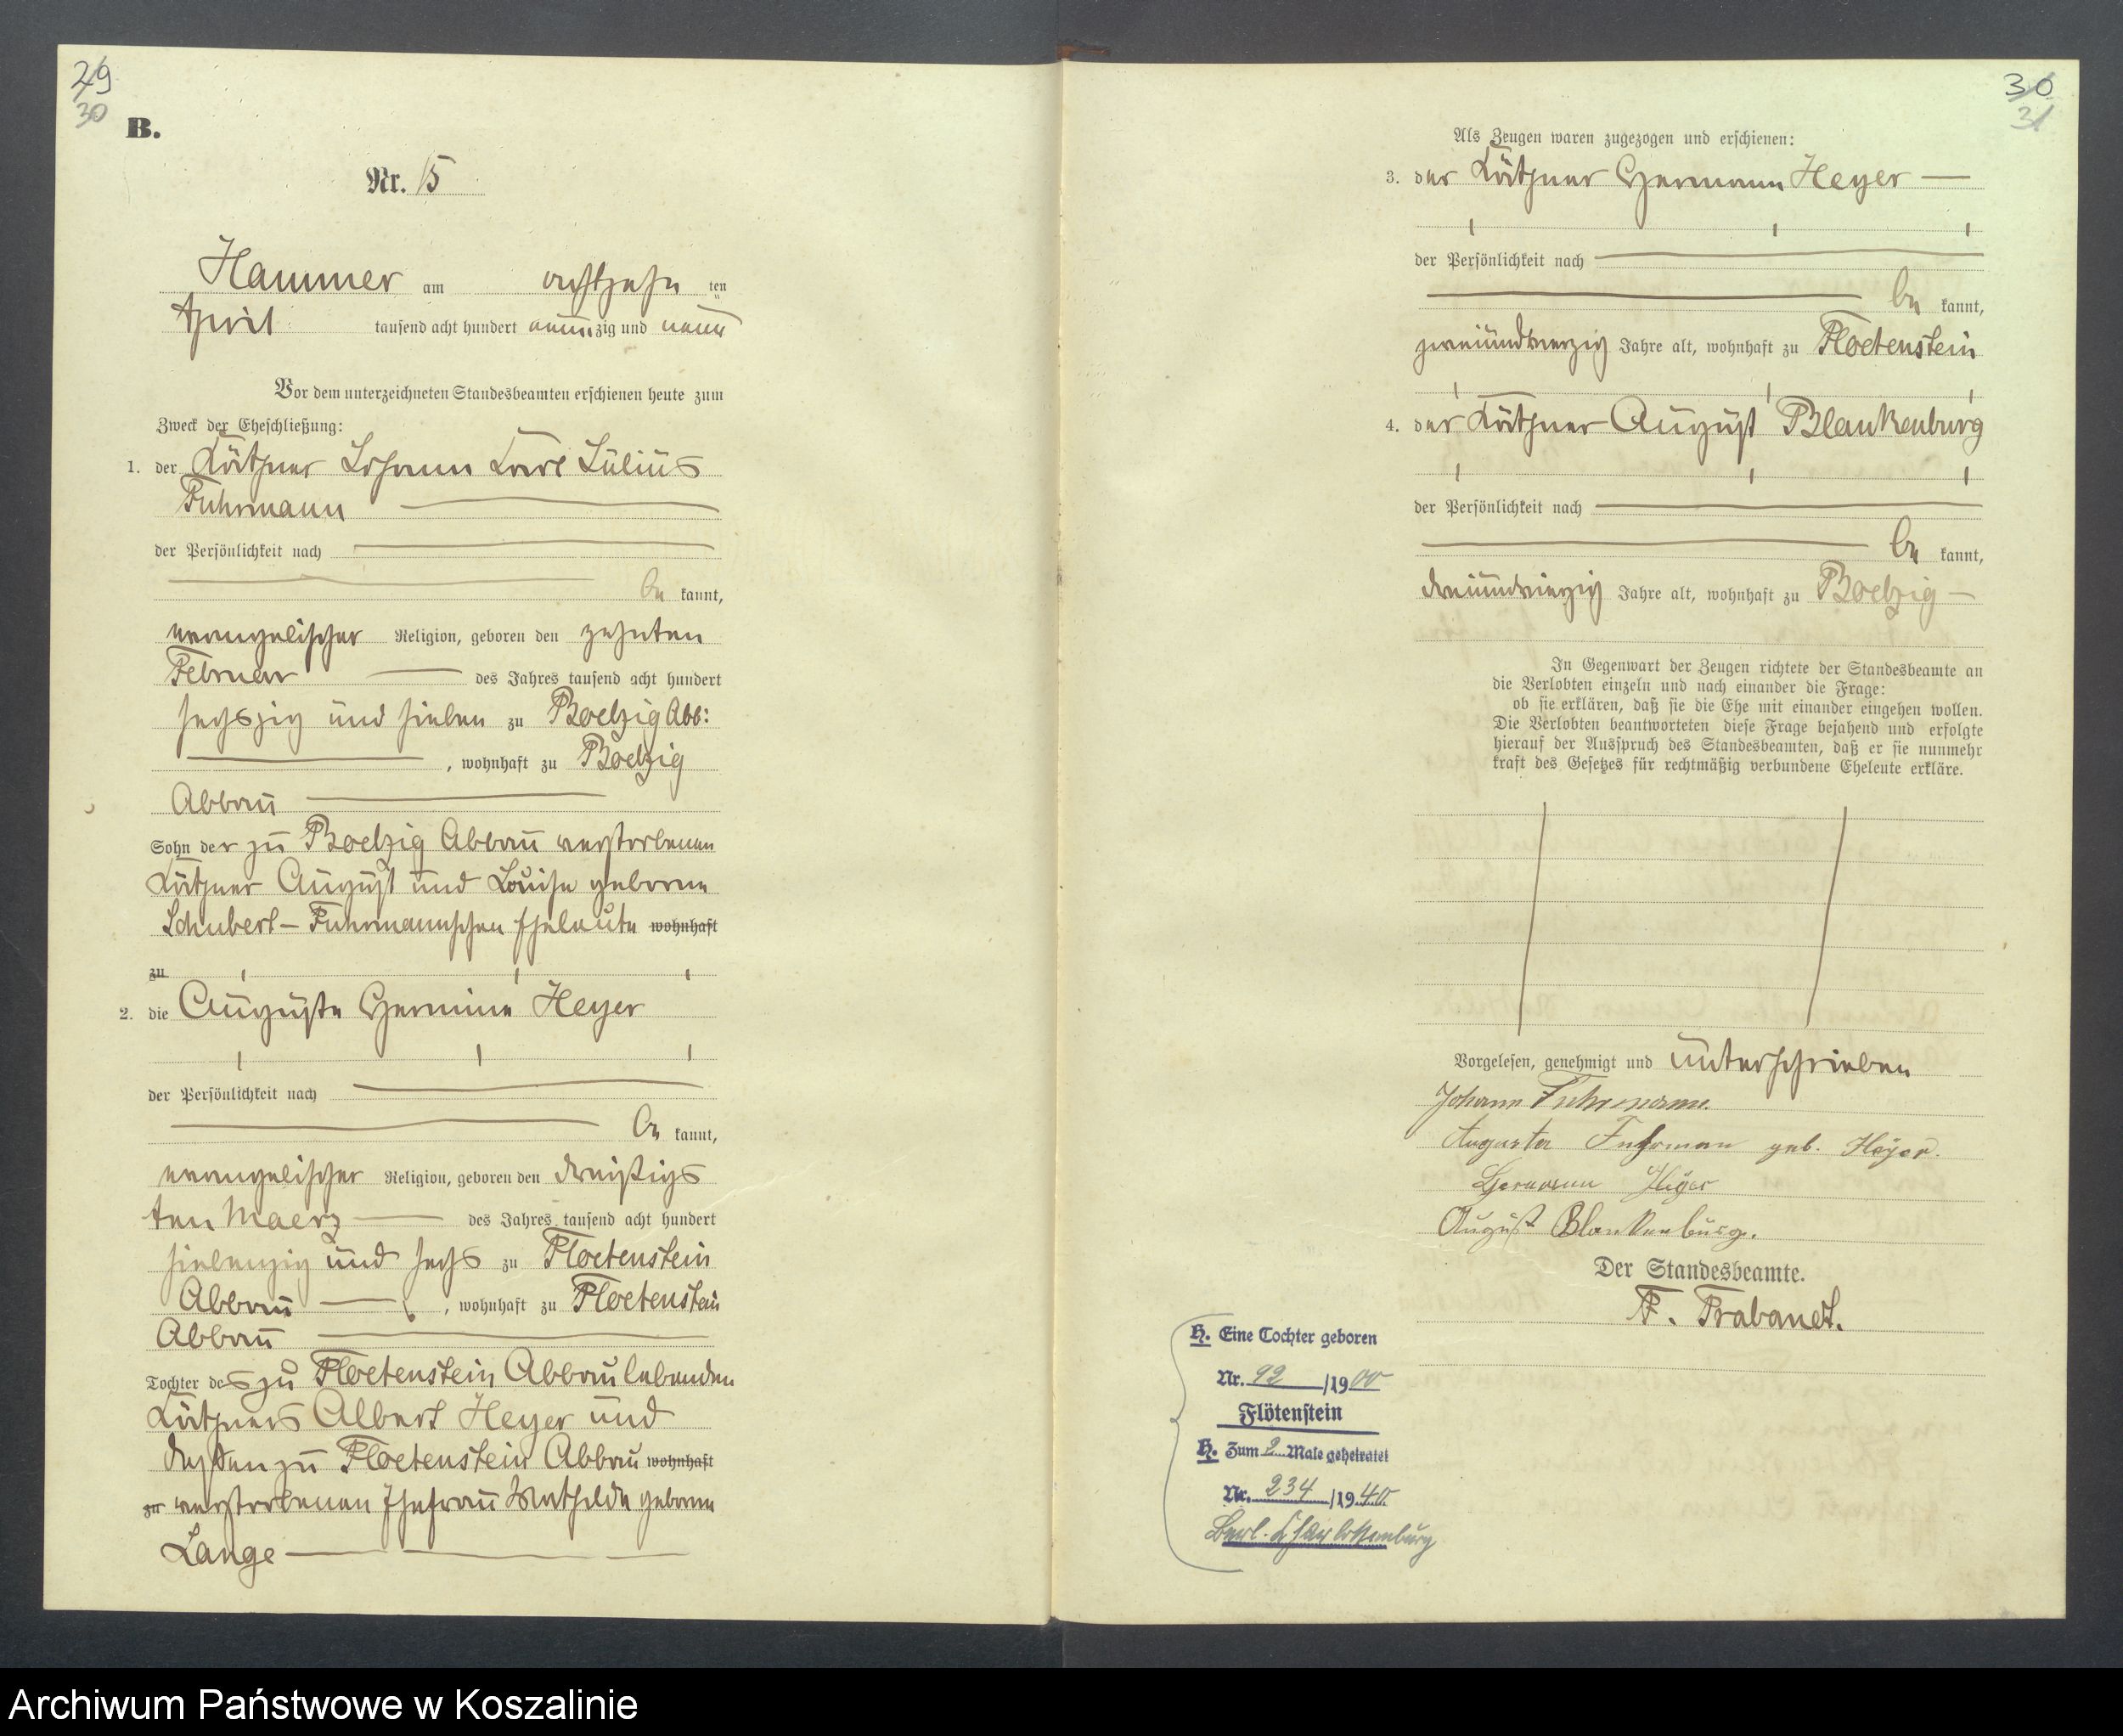 29
30
B.
Nr. 15
Hammer am achtzehn ten
April tausend acht hundert neunzig und neun
Vor dem unterzeichneten Standesbeamten erschienen heute zum
Zweck der Eheschließung:
1. der Käthner Johann Carl Julius
Fuhrmann
der Persönlichkeit nach
be kannt,
evangelischer Religion, geboren den zehnten
Februar des Jahres tausend acht hundert
sechszig und sieben zu Boelzig Abb:
, wohnhaft zu Boelzig
Abbau
Sohn der zu Boelzig Abbau verstorbenen
Käthner August und Louise geborne
Schubert - Fuhrmannschen Eheleute wohnhaft
zu
2. die Auguste Hermine Heyer
der Persönlichkeit nach
be kannt,
evangelischer Religion, geboren den dreißigs
ten Maerz des Jahres tausend acht hundert
siebenzig und sechs zu Floetenstein
Abbau , wohnhaft zu Floetenstein
Abbau
Tochter des zu Floetenstein Abbau lebenden
Käthners Albert Heyer und
dessen zu Floetenstein Abbau wohnhaft
zu verstorbenen Ehefrau Mathilde geborne
Lange
30
31
Als Zeugen waren zugezogen und erschienen:
3. der Käthner Hermann Heyer
der Persönlichkeit nach
be kannt,
zweiundvierzig Jahre alt, wohnhaft zu Floetenstein
4. der Käthner August Blankenburg
der Persönlichkeit nach
be kannt,
dreiundvierzig Jahre alt, wohnhaft zu Boelzig
In Gegenwart der Zeugen richtete der Standesbeamte an
die Verlobten einzeln und nach einander die Frage:
ob sie erklären, daß sie die Ehe mit einander eingehen wollen.
Die Verlobten beantworteten diese Frage bejahend und erfolgte
hierauf der Ausspruch des Standesbeamten, daß er sie nunmehr
kraft des Gesetzes für rechtmäßig verbundene Eheleute erkläre.
Vorgelesen, genehmigt und unterschrieben
Johann Fuhrmann.
Auguste Fuhrman geb. Heyer.
Hermann Heyer
August Blankenburg.
Der Standesbeamte.
F. Trabandt.
H. Eine Tochter geboren
Nr. 92 /1900
Flötenstein
H. Zum 2. Male geheiratet
Nr. 234 /1940
Berl. Charlottenburg
Archiwum Państwowe w Koszalinie